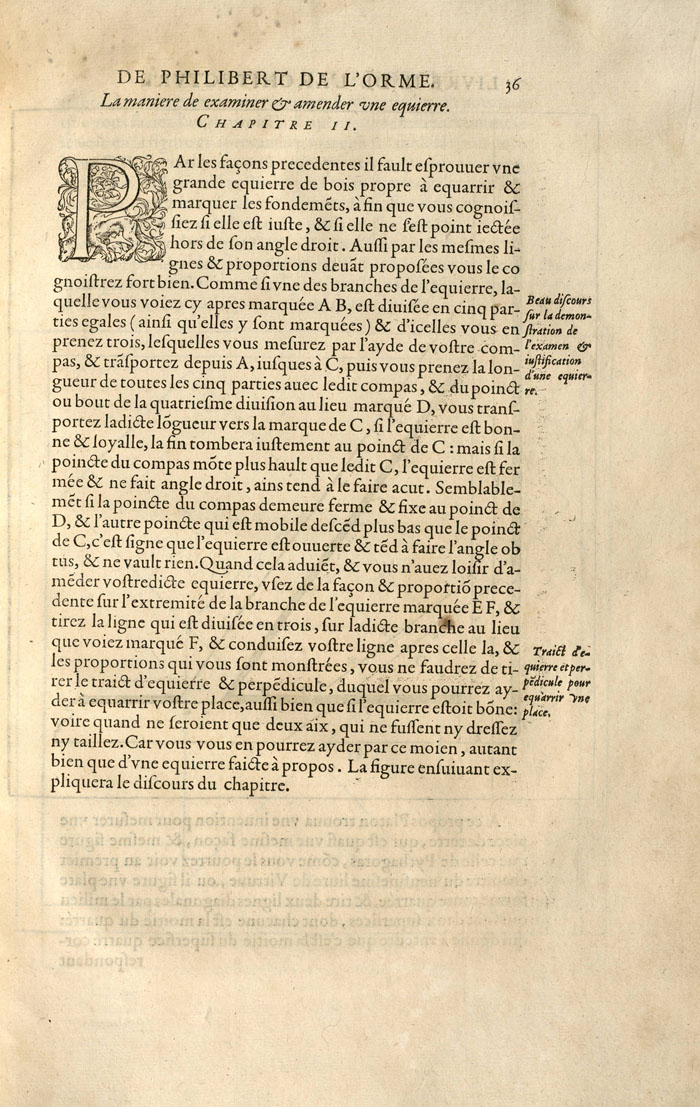 DE PHILIBERT DE L'ORME. 36
La maniere de examiner & amender vne equierre.
CHAPITRE II.
PAr les façons precedentes il fault eſprouuer vne
grande equierre de bois propre à equarrir &
marquer les fondemẽts, à fin que vous cognoiſ-
ſiez ſi elle eſt iuſte, & ſi elle ne ſeſt point iectée
hors de ſon angle droit. Auſſi par les meſmes li-
gnes & proportions deuãt propoſées vous le co
gnoiſtrez fort bien. Comme ſi vne des branches de l'equierre, la-
quelle vous voiez cy apres marquée A B, eſt diuiſée en cinq par-
ties egales (ainſi qu'elles y ſont marquées) & d'icelles vous en
prenez trois, leſquelles vous meſurez par l'ayde de voſtre com-
pas, & trãſportez depuis A, iuſques à C, puis vous prenez la lon-
gueur de toutes les cinq parties auec ledit compas, & du poinct
ou bout de la quatrieſme diuiſion au lieu marqué D, vous tranſ-
portez ladicte lõgueur vers la marque de C, ſi l'equierre eſt bon-
ne & loyalle, la fin tombera iuſtement au poinct de C : mais ſi la
poincte du compas mõte plus hault que ledit C, l'equierre eſt fer
mée & ne fait angle droit, ains tend à le faire acut. Semblable-
mẽt ſi la poincte du compas demeure ferme & fixe au poinct de
D, & l'autre poincte qui eſt mobile deſcẽd plus bas que le poinct
de C, c'eſt ſigne que l'equierre eſt ouuerte & tẽd à faire l'angle ob
tus, & ne vault rien. Quand cela aduiẽt, & vous n'auez loiſir d'a-
mẽder voſtredicte equierre, vſez de la façon & proportiõ prece-
dente ſur l'extremité de la branche de l'equierre marquée E F, &
tirez la ligne qui eſt diuiſée en trois, ſur ladicte branche au lieu
que voiez marqué F, & conduiſez voſtre ligne apres celle la, &
les proportions qui vous ſont monſtrées, vous ne faudrez de ti-
rer le traict d'equierre & perpẽdicule, duquel vous pourrez ay-
der à equarrir voſtre place, auſſi bien que ſi l'equierre eſtoit bõne:
voire quand ne ſeroient que deux aix, qui ne fuſſent ny dreſſez
ny taillez. Car vous vous en pourrez ayder par ce moien, autant
bien que d'vne equierre faicte à propos. La figure enſuiuant ex-
pliquera le diſcours du chapitre.
Beau diſcours
ſur la demon-
ſtration de
l'examen &
iuſtification
d'une equier-
re.
Traict d'e-
quierre et per-
pẽdicule pour
equarrir vne
place.